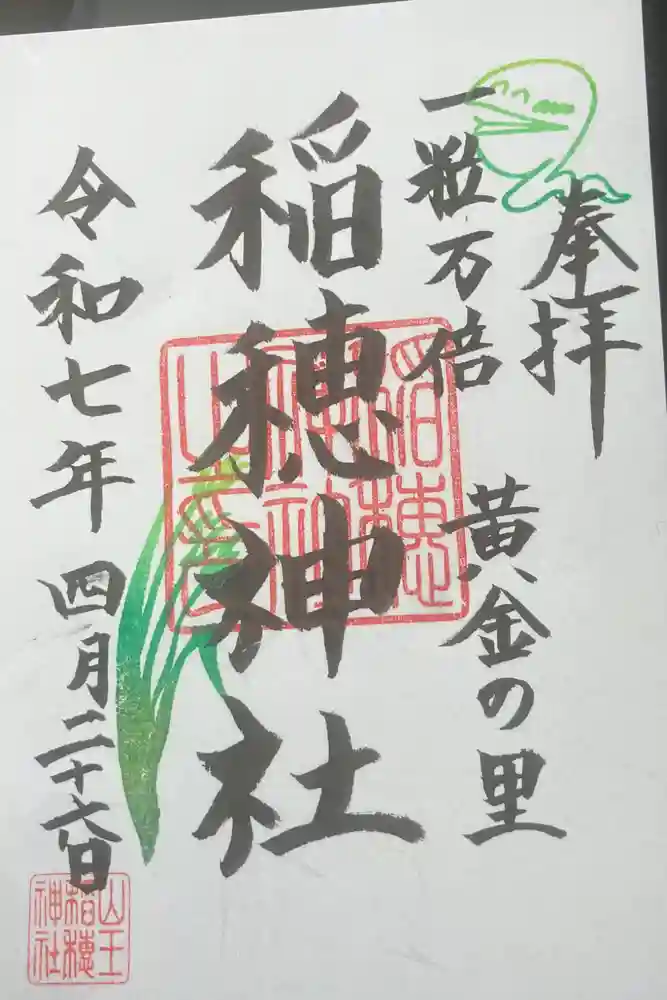 奉拝
一粒万倍
黄金の里
稲穂神社
令和七年 四月二十六日
山王
稲穂
神社